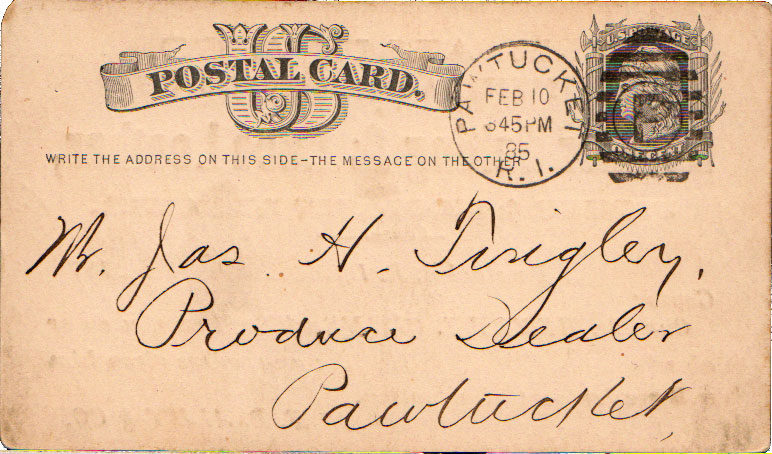 US
POSTAL CARD.
WRITE THE ADDRESS ON THIS SIDE–THE MESSAGE ON THE OTHER
PAWTUCKET
FEB 10
645PM
85
R. I.
U.S. POSTAGE
ONE CENT
Mr. Jas. H. Tingley,
Produce Dealer
Pawtucket,